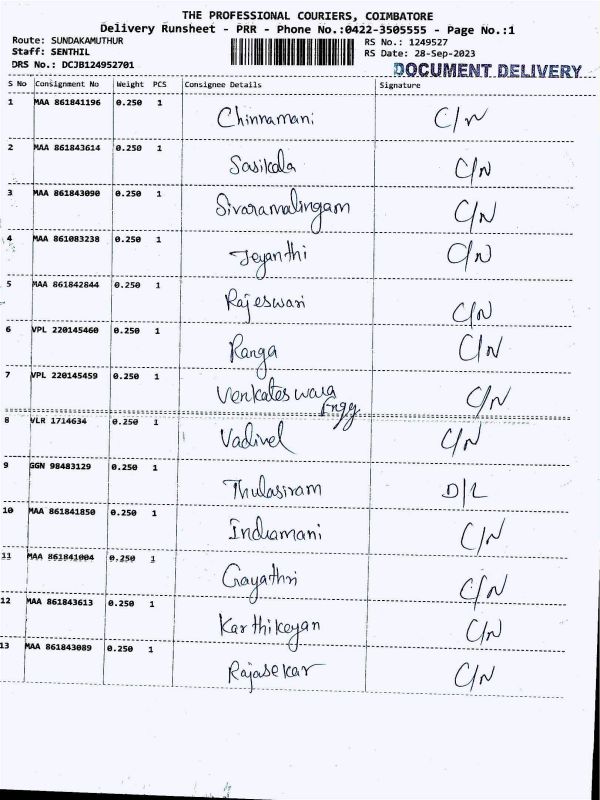 THE PROFESSIONAL COURIERS, COIMBATORE
Delivery Runsheet - PRR - Phone No.:0422-3505555 - Page No.:1
Route: SUNDAKAMUTHUR RS No.: 1249527
Staff: SENTHIL RS Date: 28-Sep-2023
DRS No.: DCJB124952701 DOCUMENT DELIVERY
S No Consignment No Weight PCS Consignee Details Signature
1 MAA 861841196 0.250 1 Chinnamani C/N
2 MAA 861843614 0.250 1 Sasikala C/N
3 MAA 861843090 0.250 1 Sivaramalingam C/N
4 MAA 861083238 0.250 1 Jeyanthi C/N
5 MAA 861842844 0.250 1 Rajeswari C/N
6 VPL 220145460 0.250 1 Ranga C/N
7 VPL 220145459 0.250 1 Venkateswara C/N
Engg
8 VLR 1714634 0.250 1 Vadivel C/N
9 GGN 98483129 0.250 1 Thulasiram D/L
10 MAA 861841850 0.250 1 Indramani C/N
11 MAA 861841004 0.250 1 Gayathri C/N
12 MAA 861843613 0.250 1 Karthikeyan C/N
13 MAA 861843089 0.250 1 Rajasekar C/N